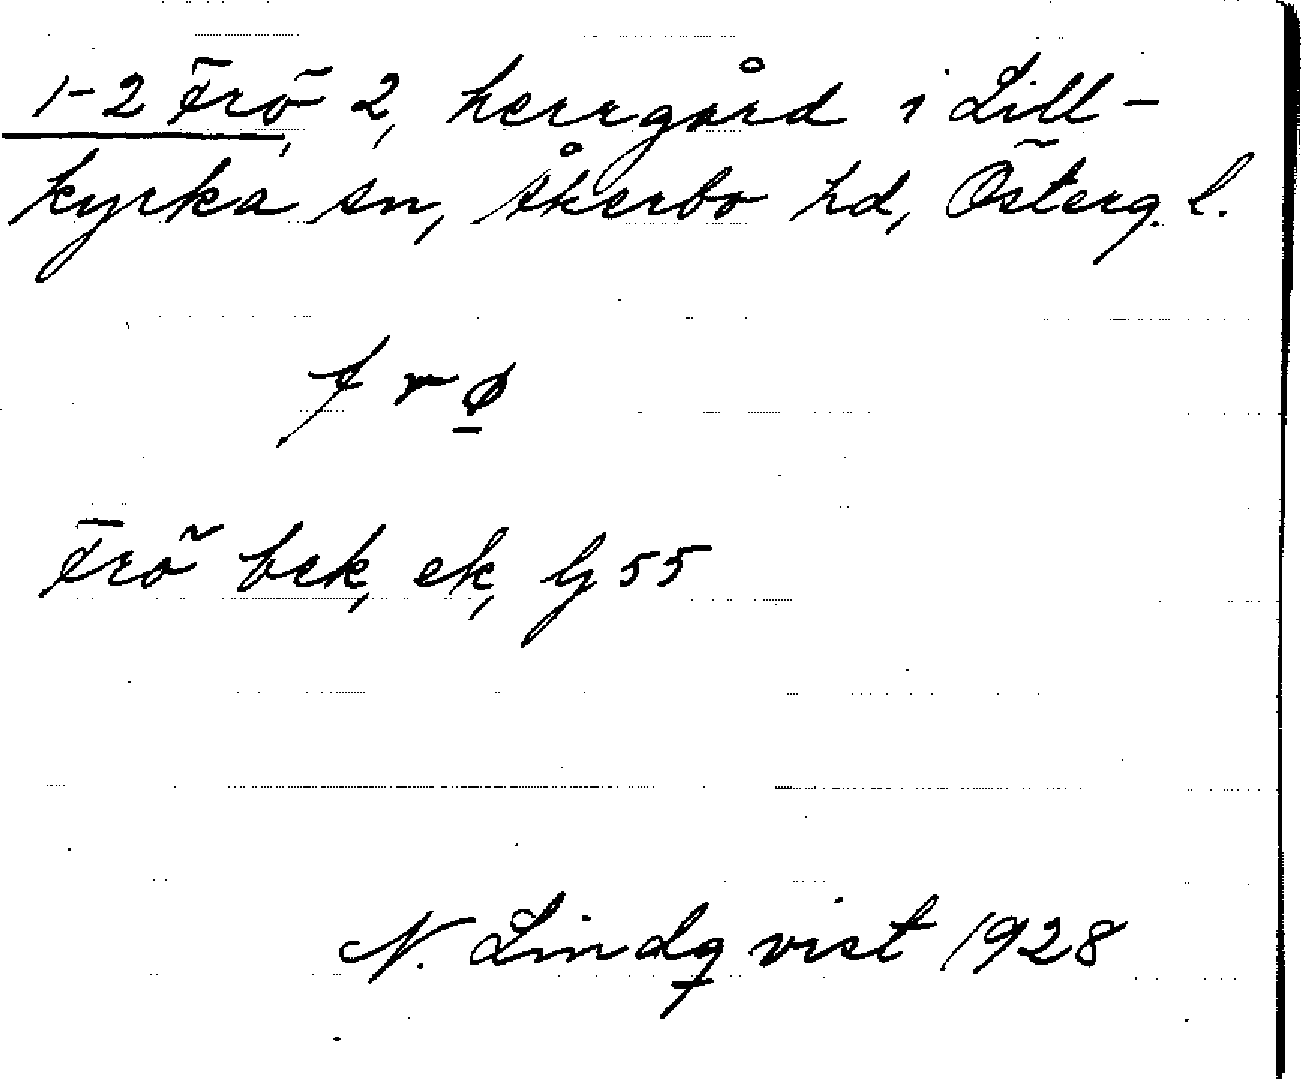 1-2 Frö, 2, herrgård i Lill-
kyrka sn, Åkerbo hd, Österg. l.
f r ø
Frö bek, ek, Gj 55
N. Lindqvist 1928